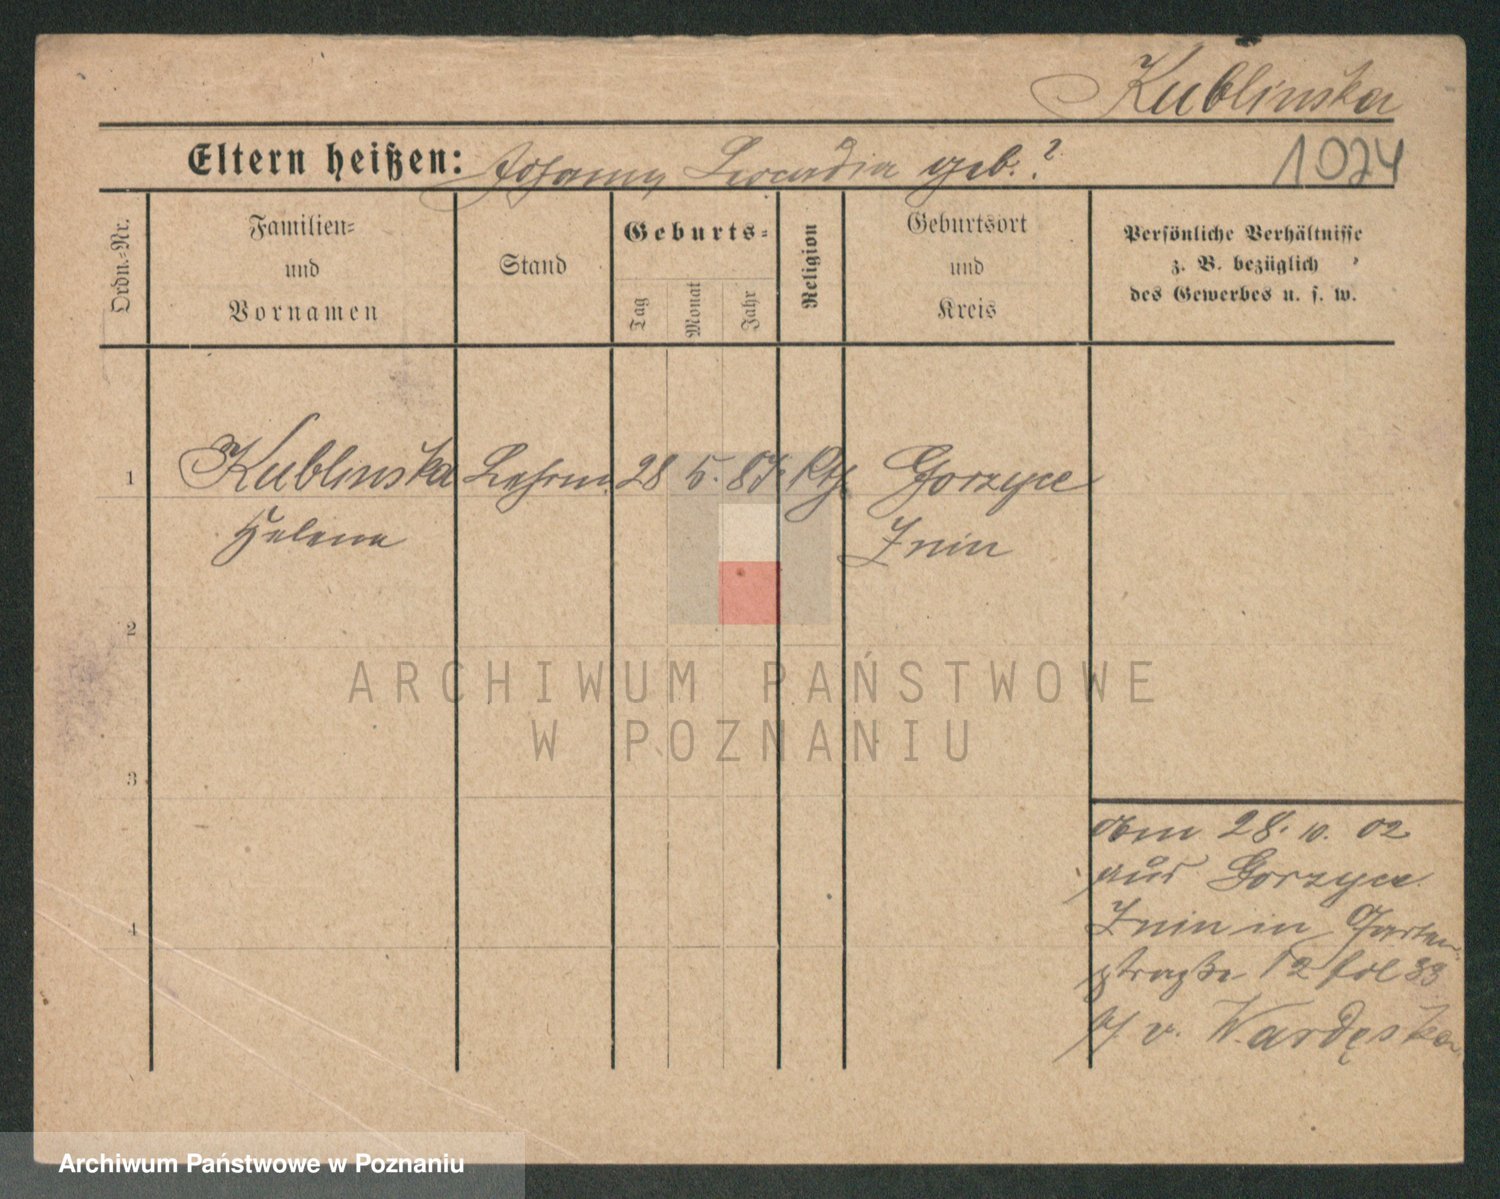 Kublinska
Eltern heißen: Johann Leocadia geb. ?
1024
Ordn.-Nr.
Familien-
und
Vornamen
Stand
Geburts-
Tag
Monat
Jahr
Religion
Geburtsort
und
Kreis
Persönliche Verhältnisse
z. B. bezüglich
des Gewerbes u. s. w.
1 Kublinska 28 5. 87. Kth Gorzyce
Helena Znin
2
3
4
28. 10. 02
aus Gorzyce
Znin in Garten-
straße 12 fol 33
b/ v. Wardęska
ARCHIWUM PAŃSTWOWE
W POZNANIU
Archiwum Państwowe w Poznaniu